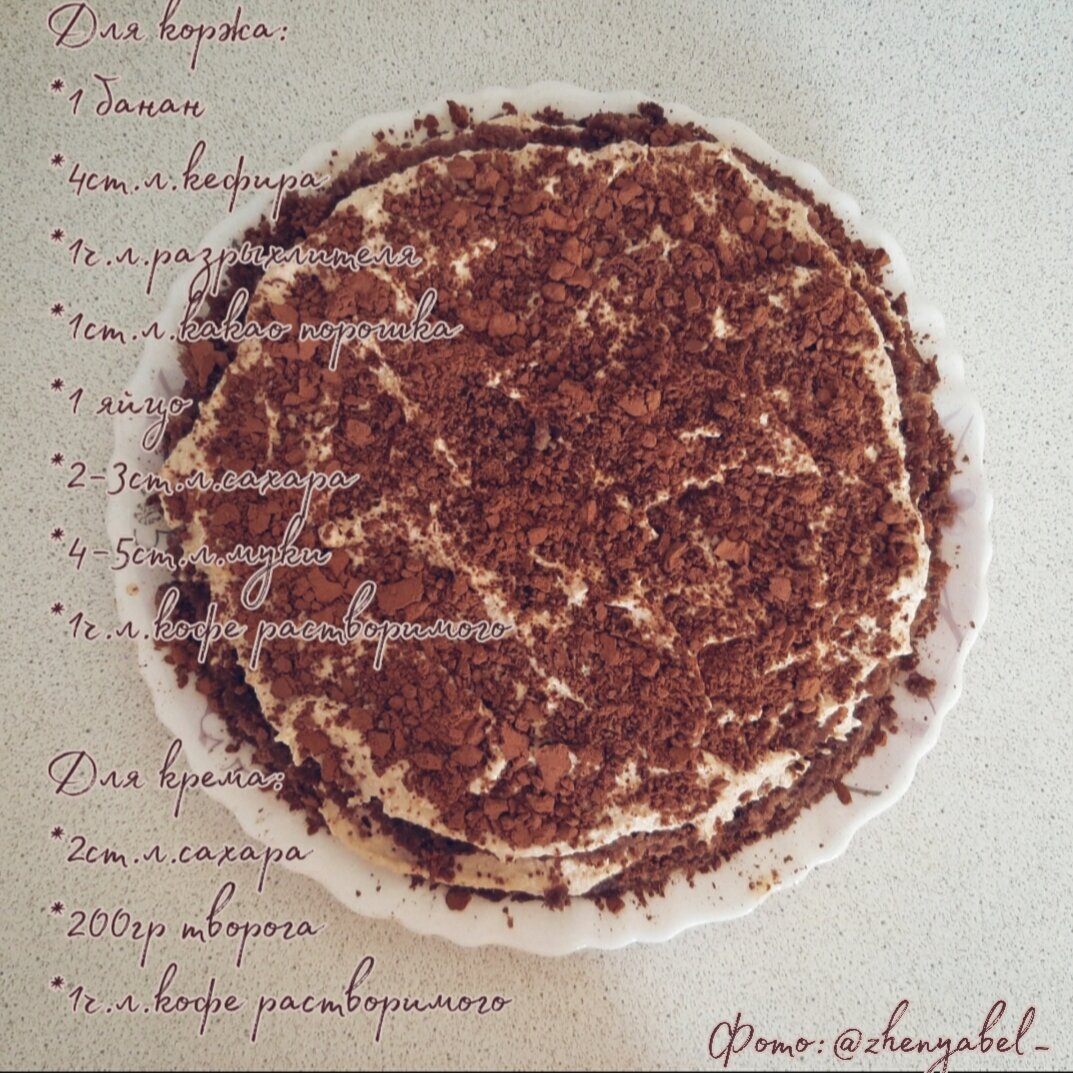 Для коржа:
*1 банан
*4ст.л.кефира
*1ч.л.разрыхлителя
*1ст.л.какао порошка
*1 яйцо
*2-3ст.л.сахара
*4-5ст.л.муки
*1ч.л.кофе растворимого
Для крема:
*2ст.л.сахара
*200гр творога
*1ч.л.кофе растворимого
Фото: @zhenyabel_